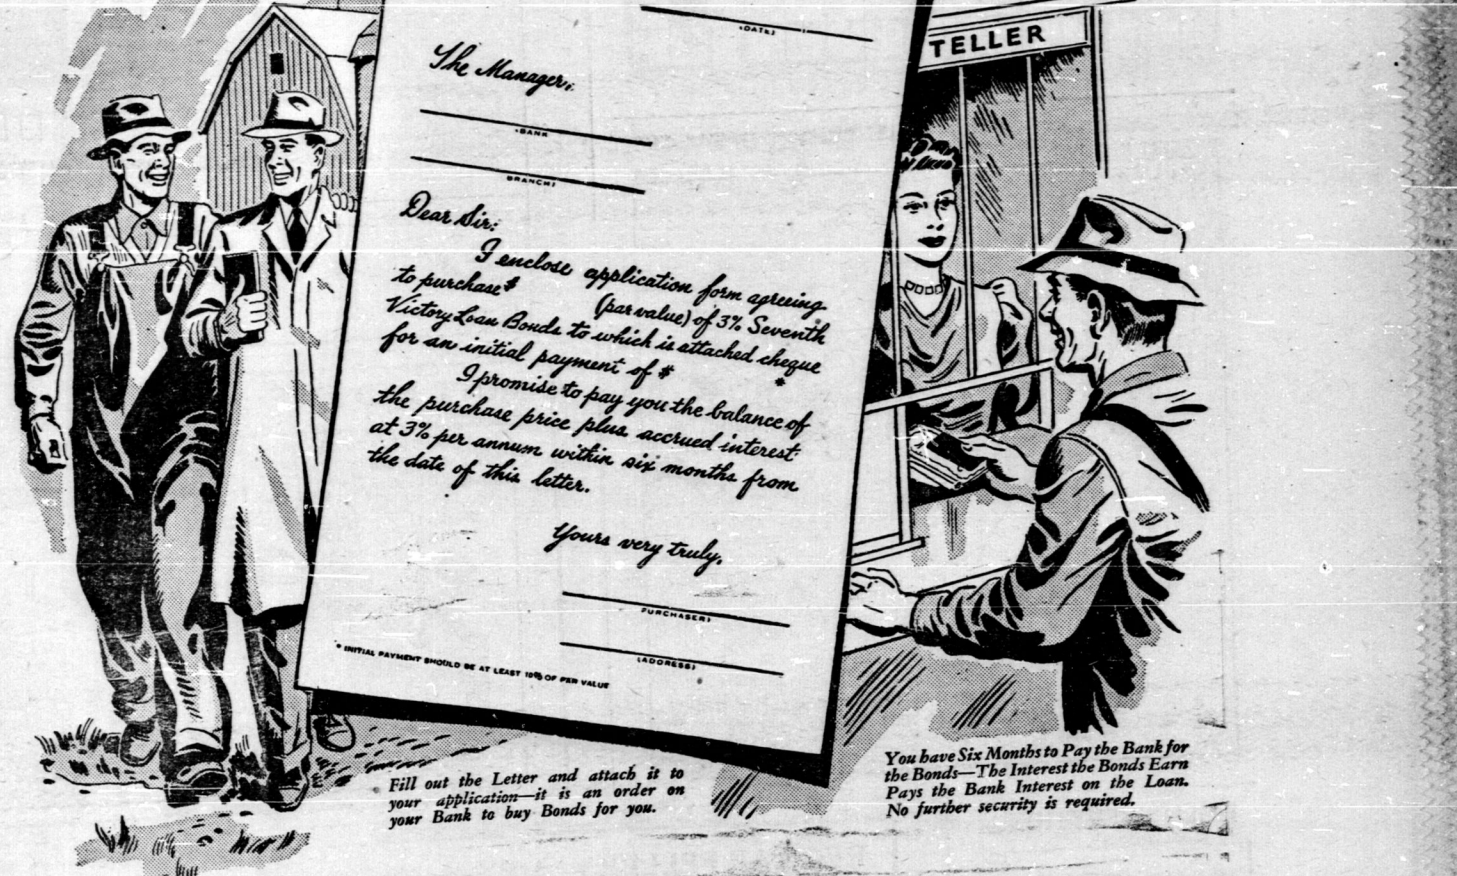 (DATE)
TELLER
The Manager,
(BANK
(BRANCH)
Dear Sir:
I enclose application form agreeing
to purchase $ (par value) of 3% Seventh
Victory Loan Bonds to which is attached cheque
for an initial payment of $ *
I promise to pay you the balance of
the purchase price plus accrued interest
at 3% per annum within six months from
the date of this letter.
Yours very truly,
(PURCHASER)
(ADDRESS)
* INITIAL PAYMENT SHOULD BE AT LEAST 10% OF PAR VALUE
Fill out the Letter and attach it to
your application—it is an order on
your Bank to buy Bonds for you.
You have Six Months to Pay the Bank for
the Bonds—The Interest the Bonds Earn
Pays the Bank Interest on the Loan.
No further security is required.